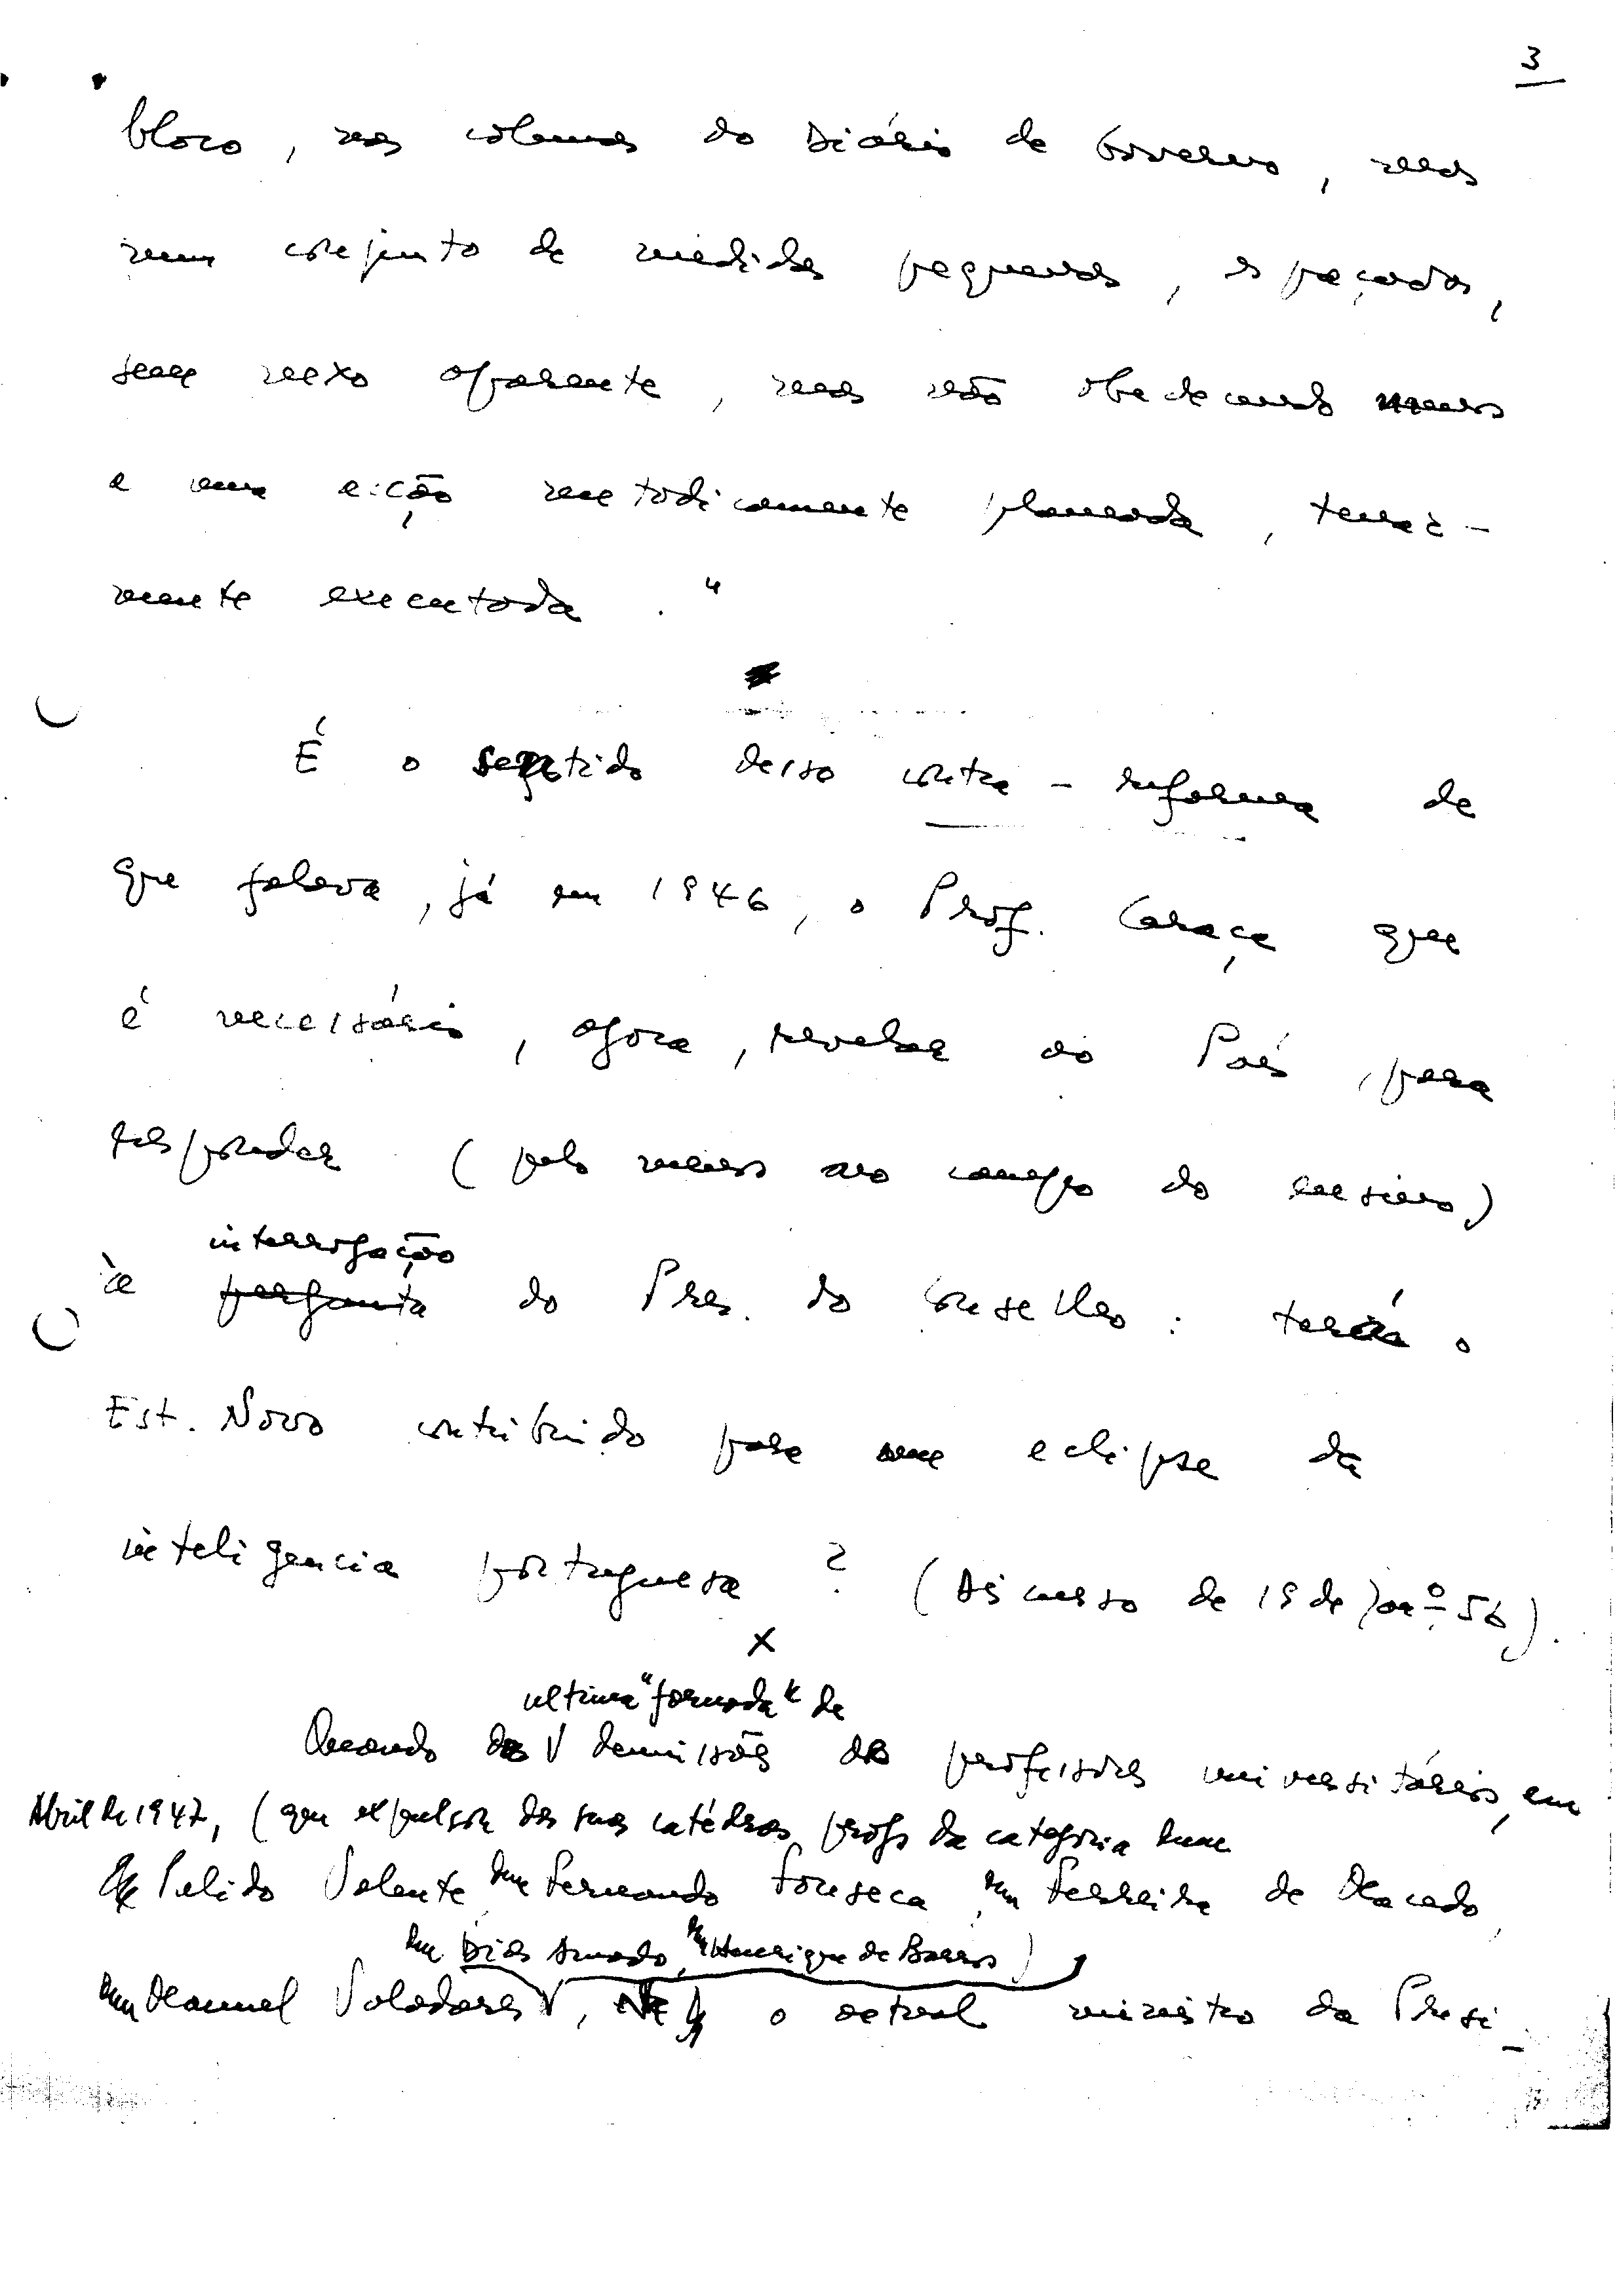 3
bloco, nas colunas do Diário do Governo, mas
num conjunto de medidas pequenas, espaçadas,
sem nexo aparente, mas não obedecendo menos
a uma acção metodicamente planeada, tenaz-
mente executada."
É o sentido dessa contra-reforma de
que falava, já em 1946, o Prof. Caraça que
é necessário, agora, revelar ao País, para
responder (pelo menos no campo do ensino)
interrogação
à pergunta do Pres. do Conselho: terá o
Est. Novo contribuído para uma eclipse da
inteligencia portuguesa? (Discurso de 19 de 56).
x
ultima "fornada" de
Quando da V demissões de professores universitários, em
Abril de 1947, (que expulsou das suas catédras profs da categoria dum
Pulido Valente, dum Fernando Fonseca, dum Ferreira de Macedo,
dum Dias Amado, dum Henrique de Barros)
dum Manuel Valadares V, o actual ministro da Presi-